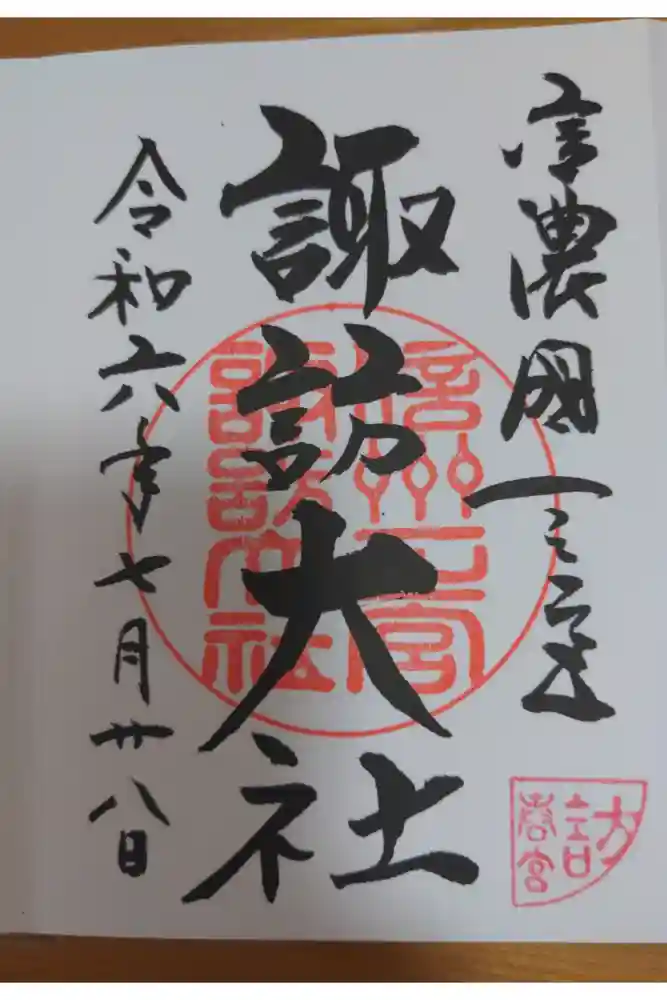 信濃國一之宮
諏訪大社
令和六年七月廿八日
信州一宮
諏訪大社
訪
春宮